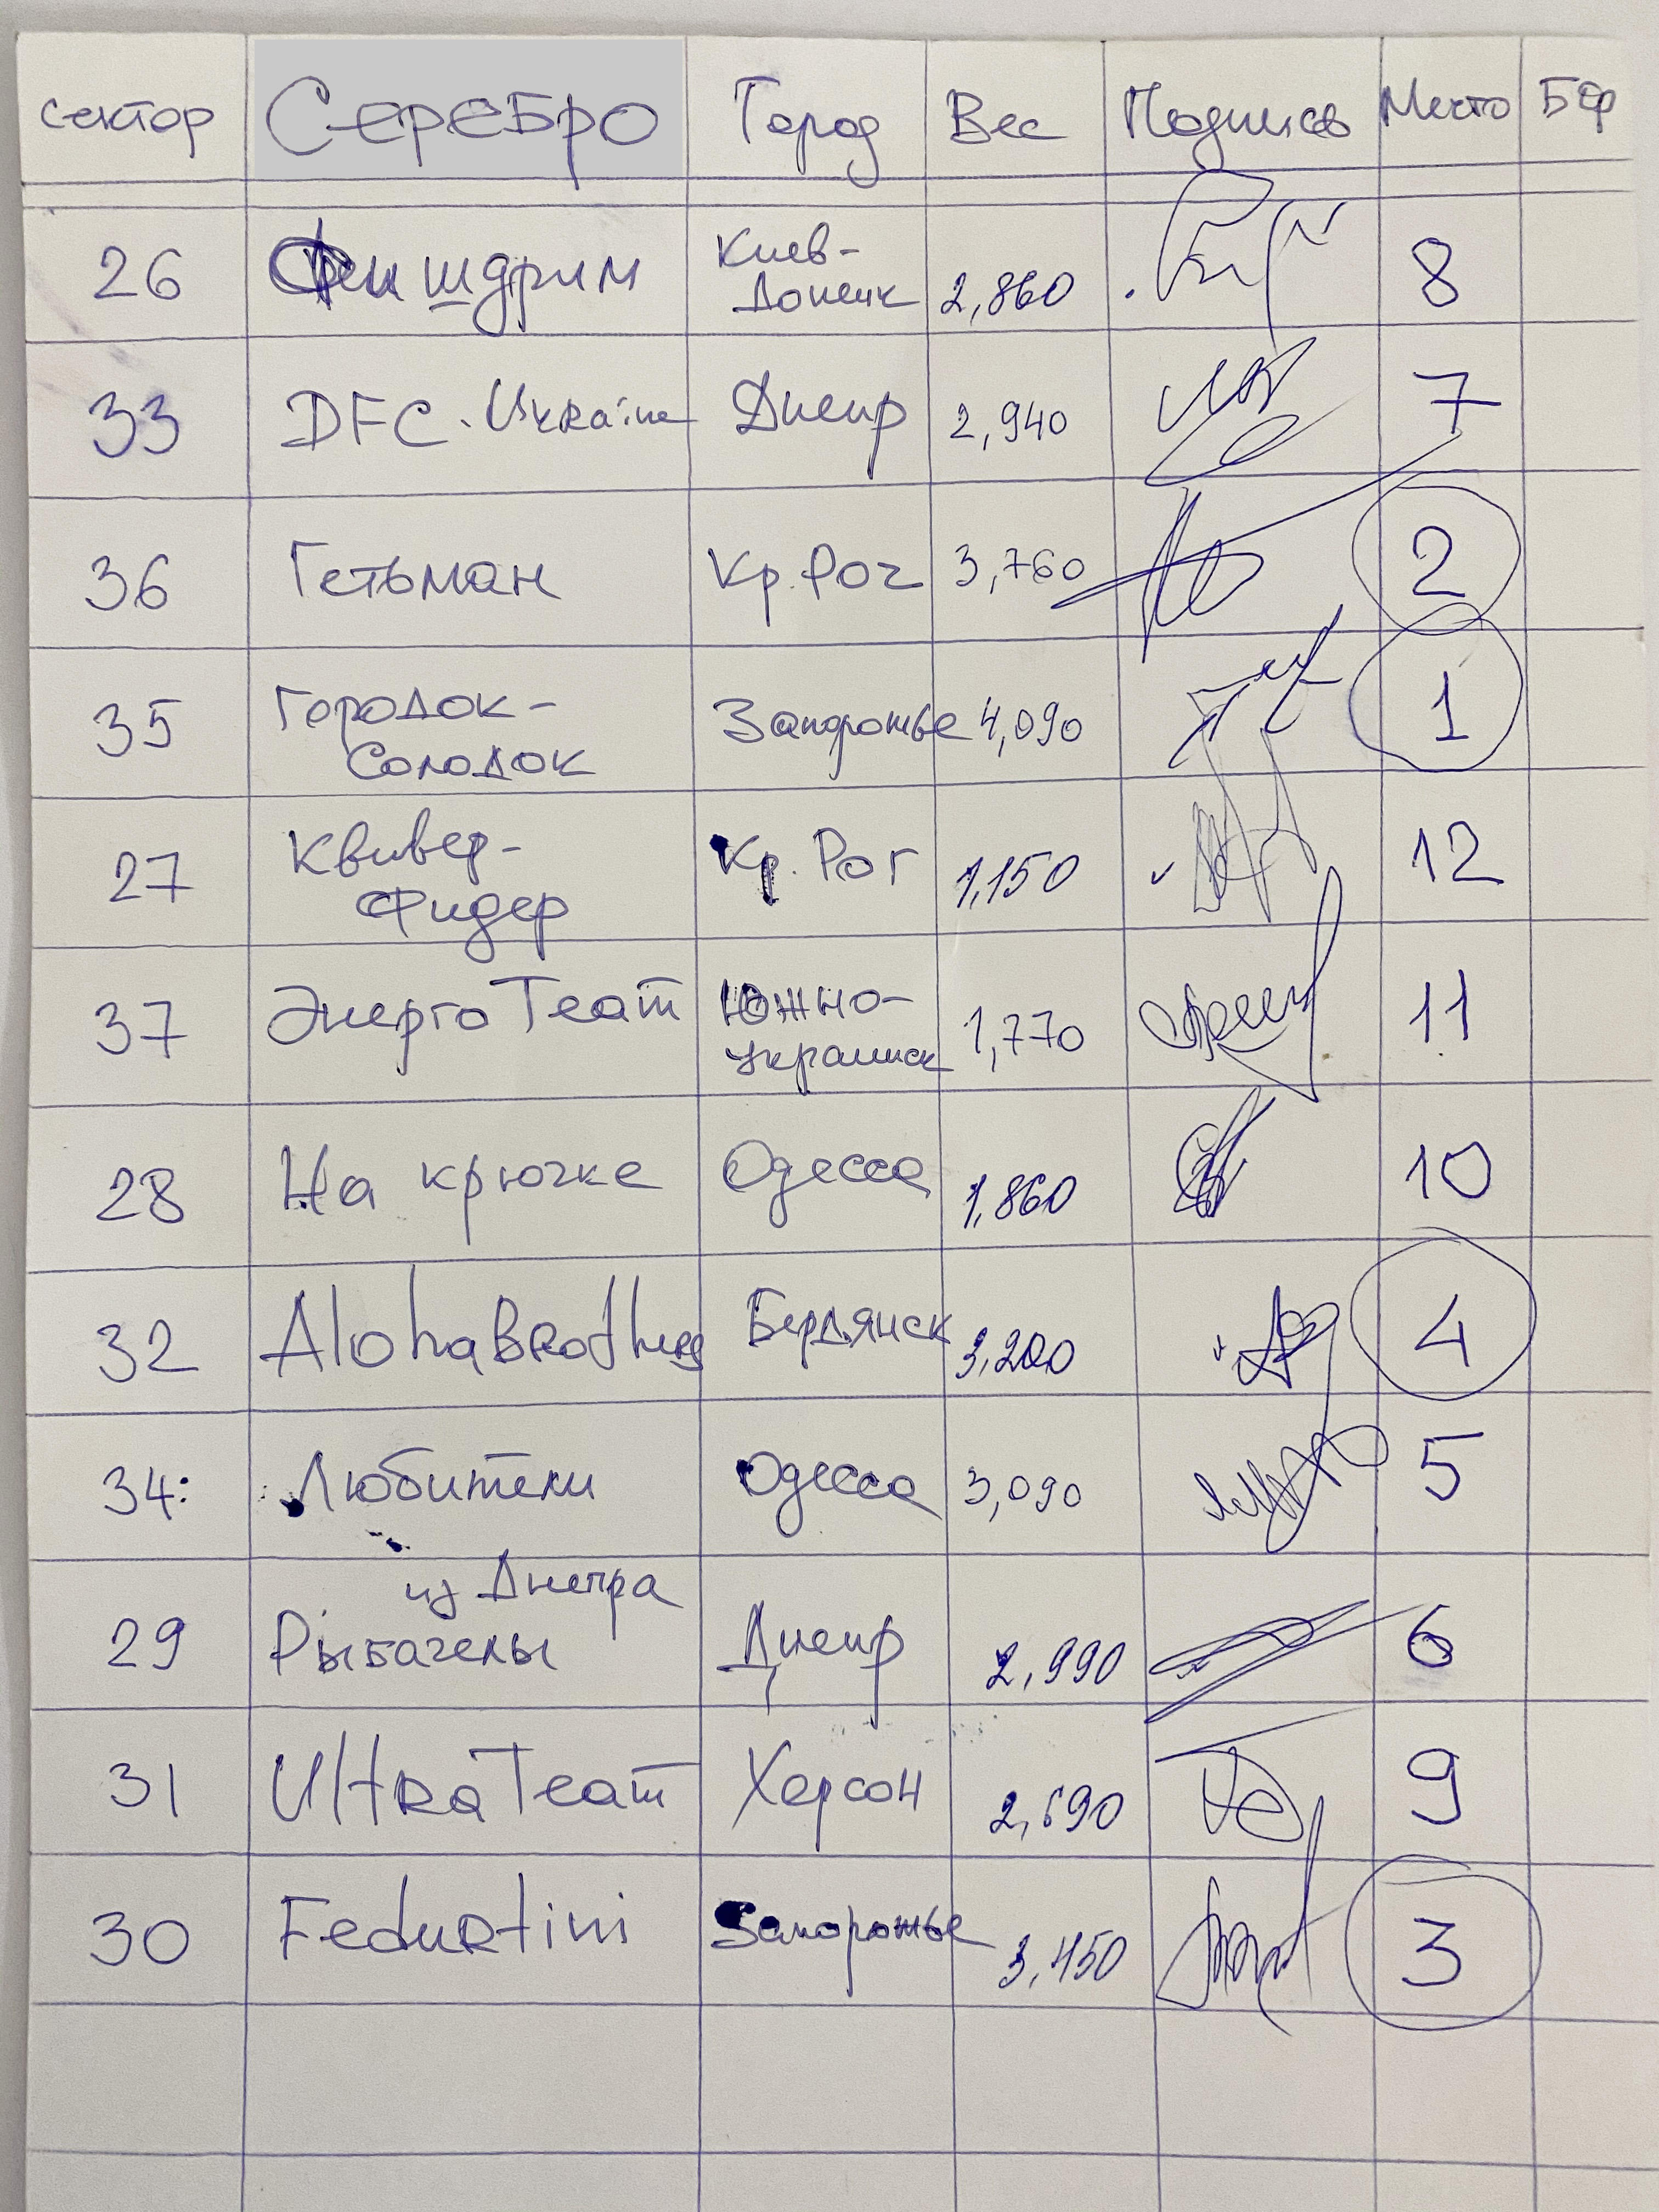 сектор Серебро Город Вес Подпись Место БФ
26 Фишдрим Киев-Донецк 2,860 8
33 DFC-Ukraine Днепр 2,940 7
36 Гетьман Кр. Рог 3,760 2
35 Городок-Солодок Запорожье 4,090 1
27 Квивер-Фидер Кр. Рог 1,150 12
37 Энерго Team Южно-украинск 1,770 11
28 На крючке Одесса 1,860 10
32 AlohaBrothers Бердянск 3,200 4
34: Любители Одесса 3,090 5
из Днепра
29 Рыбачелы Днепр 2,990 6
31 UltraTeam Херсон 2,690 9
30 Fedurtini Запорожье 3,450 3